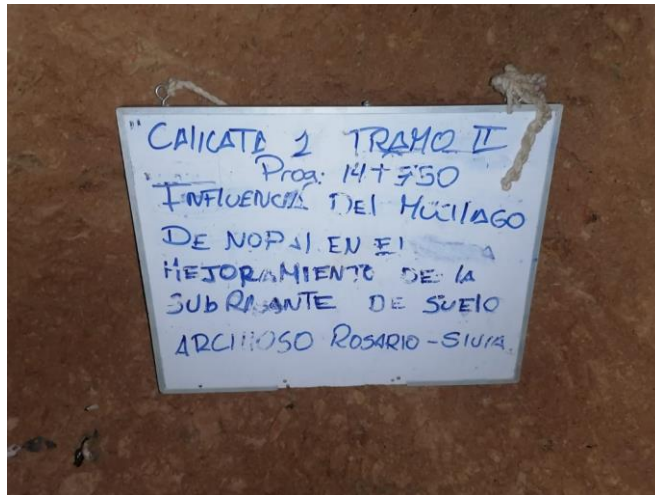 "CALICATA 1 TRAMO II
Prog: 14+750
INFLUENCIA DEL MUCILAGO
DE NOPAL EN EL
MEJORAMIENTO DE LA
SUBRASANTE DE SUELO
ARCILLOSO ROSARIO - SIVIA